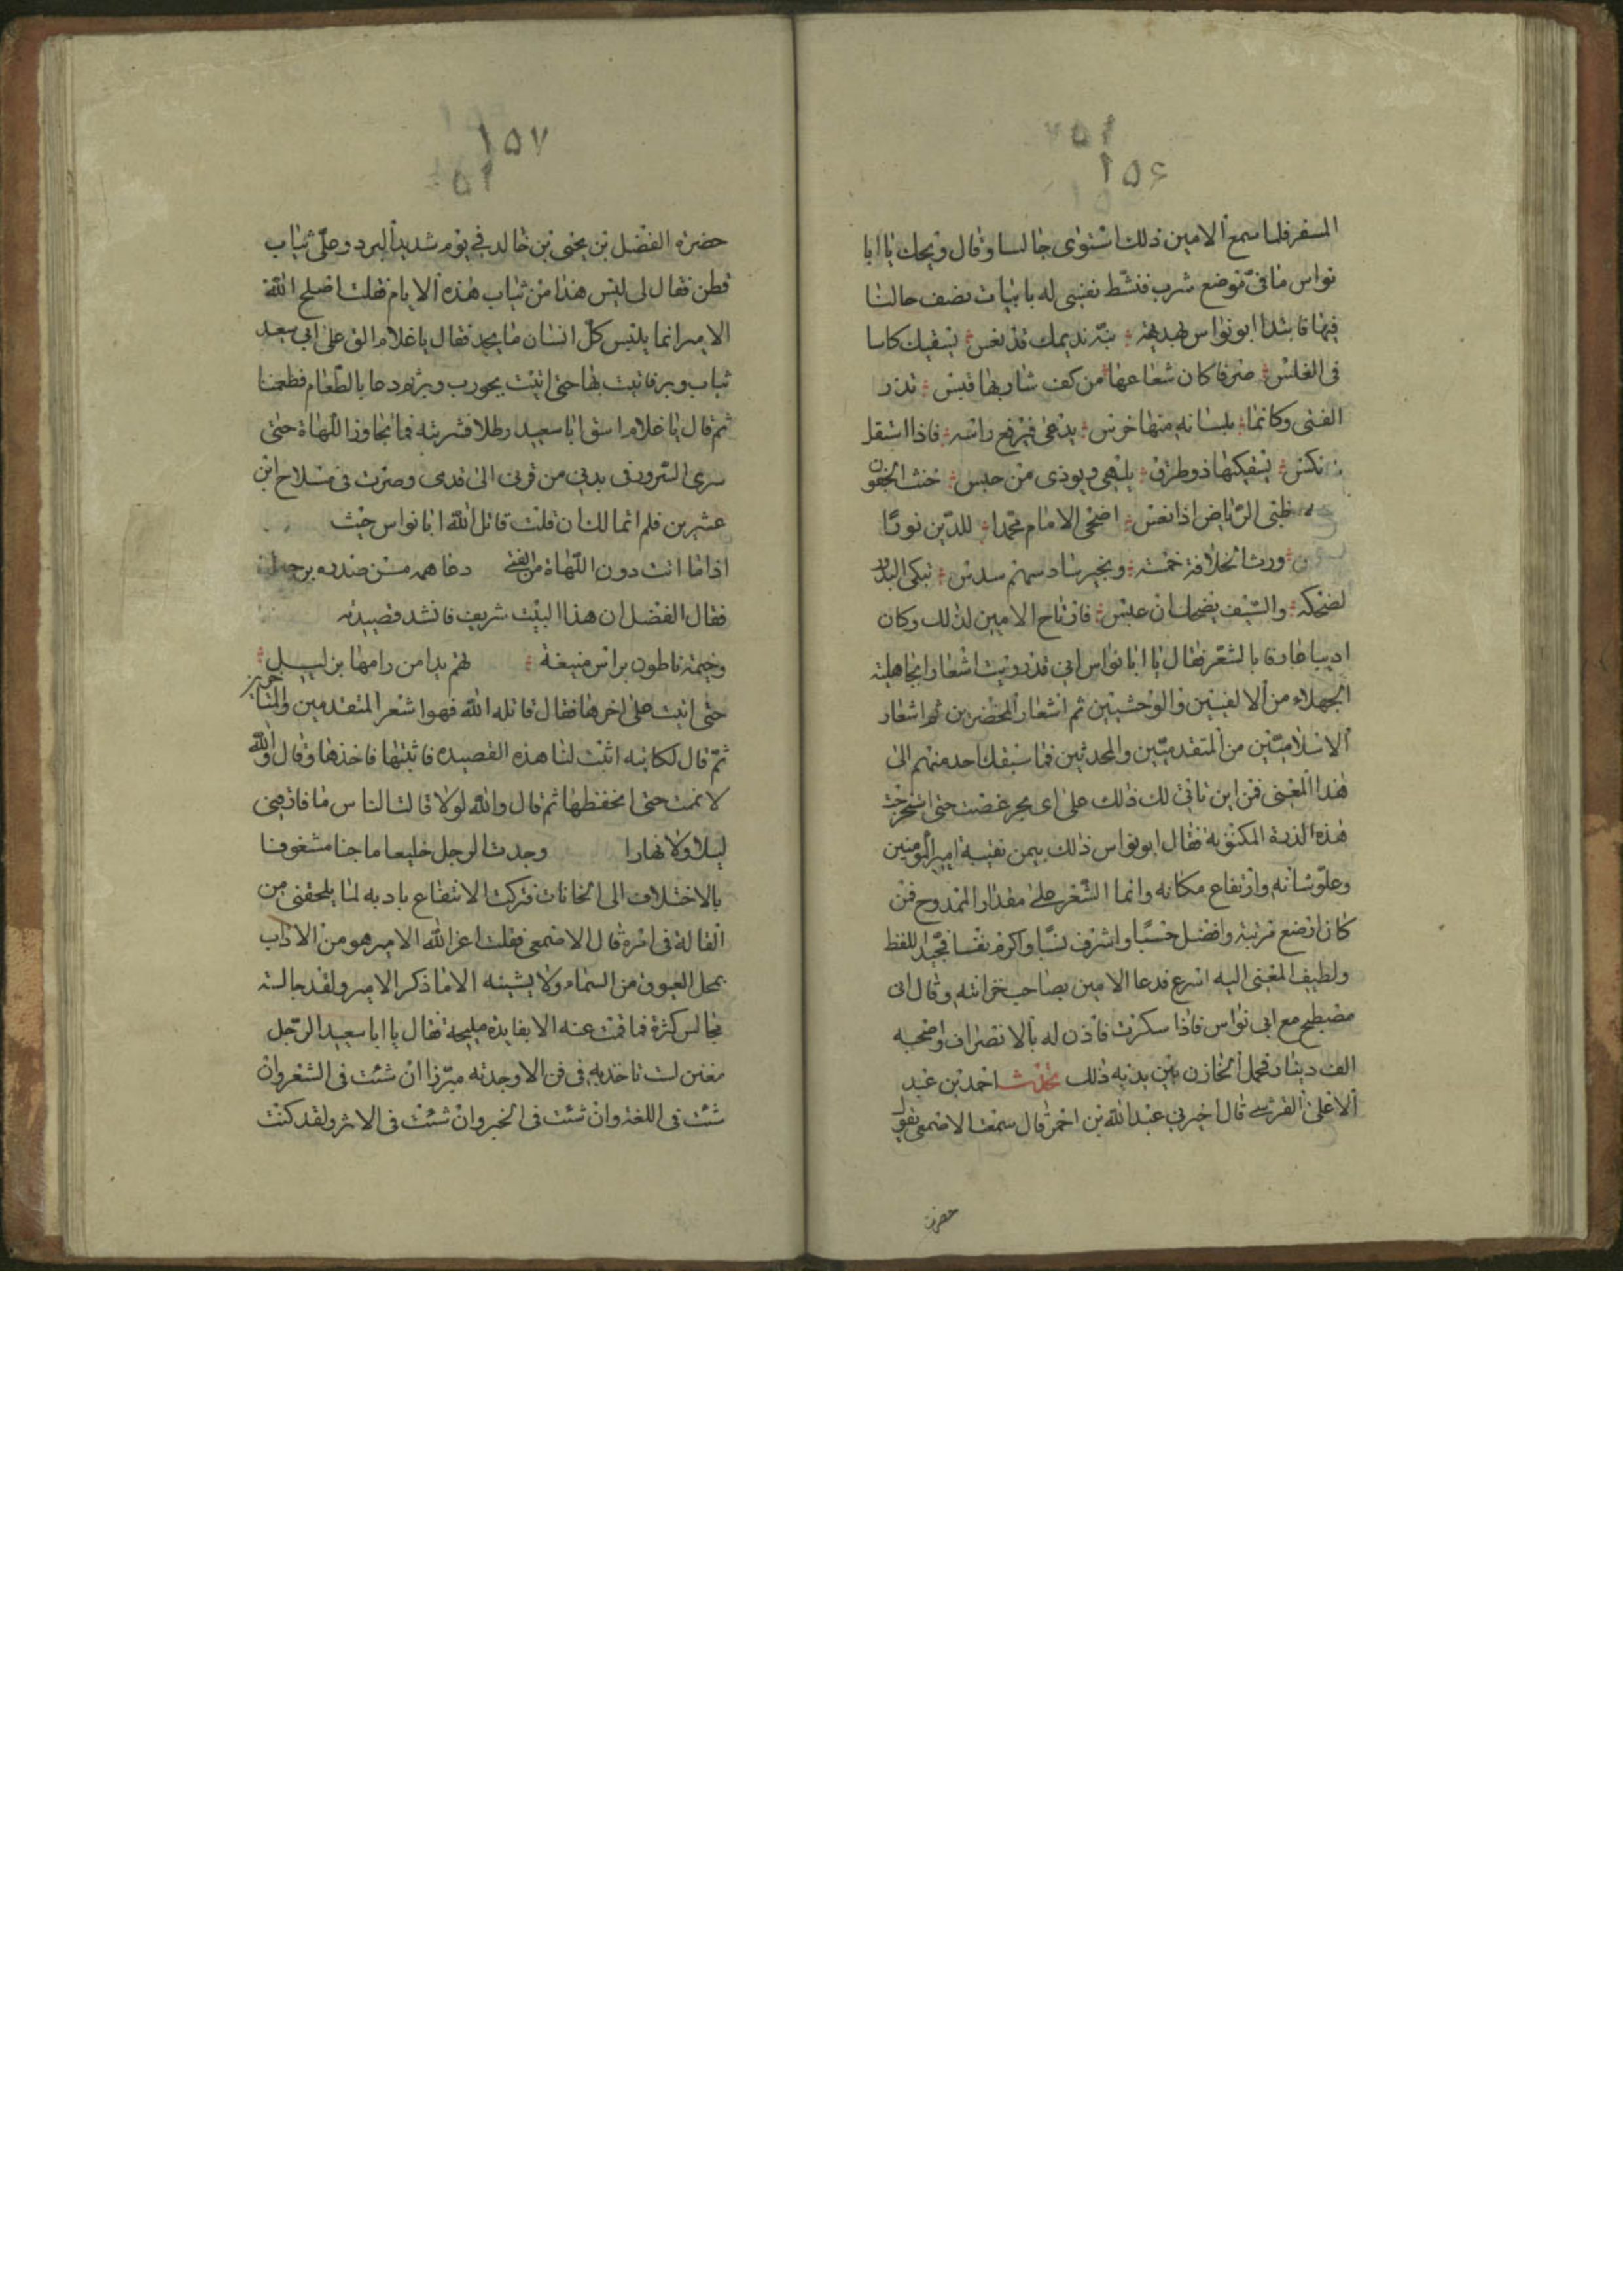 ١٥٦
المسفر فلما سمع الامين ذلك استوى جالسا وقال ويحك يا ابا
نواس ما فيّ موضع شرب فنشّط نفسي له بابيات تصف حالنا
فيها فابتدا ابو نواس نبّه نديمك قد نعس يسقيك كاسا
في الغلس صرفا كان شعاعها من كف شاربها قبس تذر
الفتى وكانما بلسانه منها خرس يدعى فيرفع راسه فاذا استقل
نكس يسقيكها ذو قرطق يلهي ويوذي من حبس خنث الجفون
ظبي الرياض اذا نعس اضحى الامام محمدا للدّين نورا
ورث الخلافة خمسة وبخير سادسهم سدس تبكي البدور
لضحكه والسّيف يضحك ان عبس فارتاح الامين لذلك وكان
اديبا عارفا بالشعر فقال يا ابا نواس اني قد رويت اشعار الجاهلية
الجهلاء من الالفيين والوحشيين ثم اشعار المخضرمين ثم اشعار
الاسلاميّين من المتقدميّين والمحدثين فما سبقك احد منهم الى
هذا المعنى فمن اين تاتى لك ذلك على اي بحر غصت حتى استخرجت
هذه الدرة المكنونة فقال ابو نواس ذلك بيمن نقيبة امير المومنين
وعلو شانه وارتفاع مكانه وانما الشعر على مقدار الممدوح فمن
كان ارفع مرتبة وافضل حسبا واشرف نسبا واكرم نفسا فجيّد اللفظ
ولطيف المعنى اليه اسرع فدعا الامين بصاحب خزانته وقال اني
مصطبح مع ابي نواس فاذا سكرت فاذن له بالانصراف واصحبه
الف دينار فحمل الخازن بين يديه ذلك حدّث احمد بن عبد
الاعلى القرشي قال اخبرني عبد الله بن احمر قال سمعت الاصمعي يقول
حضرت
١٥٧
حضرة الفضل بن يحيى بن خالد في يوم شديد البرد وعلىّ ثياب
قطن فقال لي ليس هذا من ثياب هذه الايام فقلت اصلح الله
الامير انما يلبس كل انسان ما يجد فقال يا غلام الق على ابي سعيد
ثياب وبر فاتيت بها حتى اتيت بجورب وبرّ ودعا بالطعام فطعمنا
ثم قال يا غلام اسق ابا سعيد رطلا فشربته فما تجاوز اللهاة حتى
سرى السرور في بدني من قرني الى قدمي وصرت في مسلاح ابن
عشرين فلم اتمالك ان قلت قاتل الله ابا نواس حيث
اذا ما اتت دون اللهاة من الفتى دعا همه من صدره برحيل
فقال الفضل ان هذا البيت شريف فانشد قصيدته
وخيمة ناطور براس منيفة تهم يدا من رامها بزليل
حتى اتيت على اخرها فقال قاتله الله فهو اشعر المتقدمين والمتاخرين
ثمّ قال لكاتبه اثبت لنا هذه القصيدة فاثبتها فاخذها وقال والله
لا نمت حتى احفظها ثم قال والله لولا قالت الناس ما فارقني
ليلا ولا نهارا وجدت الرجل خليعا ماجنا مشغوفا
بالاختلاف الى الخانات فتركت الانتفاع بادبه لما يلحقني من
القالة في امره قال الاصمعي فقلت اعز الله الامير هو من الاداب
بمحل العيوق من السماء ولا يشينه الا ما ذكر الامير ولقد جالسته
مجالس كثرة فما قمت عنه الا بفايدة مليحة فقال يا ابا سعيد الرّجل
مغنن لست تاخذ به في فن الا وجدته مبرّزا ان شئت في الشعر وان
شئت في اللغة وان شئت في الخبر وان شئت في الاثر ولقد كنت